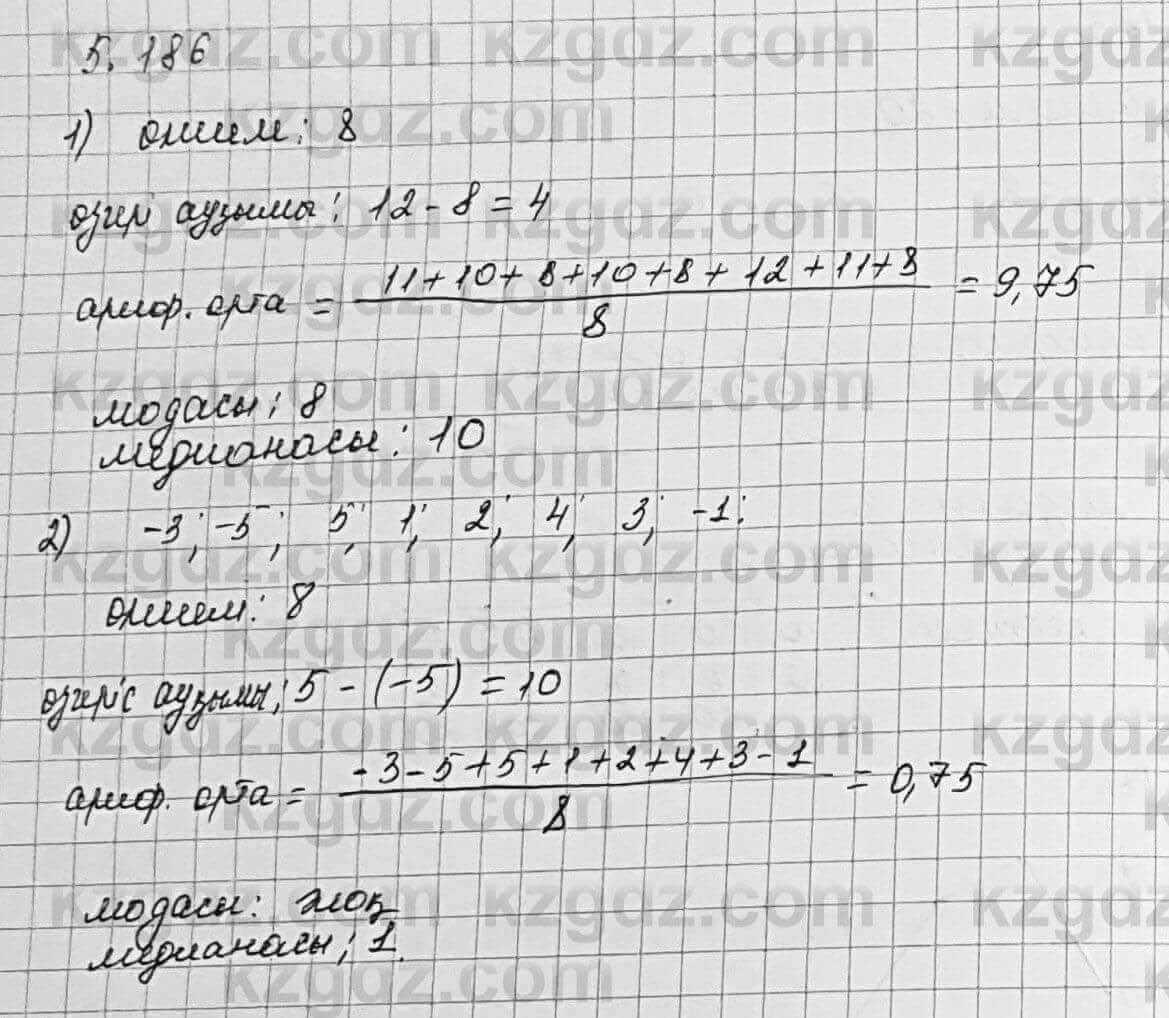 5.186
1) өлшем: 8
өзгер аузымы: 12 - 8 = 4
ариф. орта = (11 + 10 + 8 + 10 + 8 + 12 + 11 + 8) / 8 = 9,75
модасы: 8
медианасы: 10
2) -3; -5; 5; 1; 2; 4; 3; -1;
өлшем: 8
өзгеріс аузымы: 5 - (-5) = 10
ариф. орта = (-3 - 5 + 5 + 1 + 2 + 4 + 3 - 1) / 8 = 0,75
модасы: жоқ
медианасы: 1.
kzgdz.com